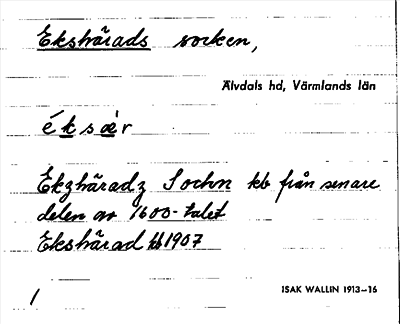 Ekshärads socken,
Älvdals hd, Värmlands län
é k s æ r
Ekzhäradz Sochn kb från senare
delen av 1600-talet
Ekshärad kb 1907
1
ISAK WALLIN 1913–16